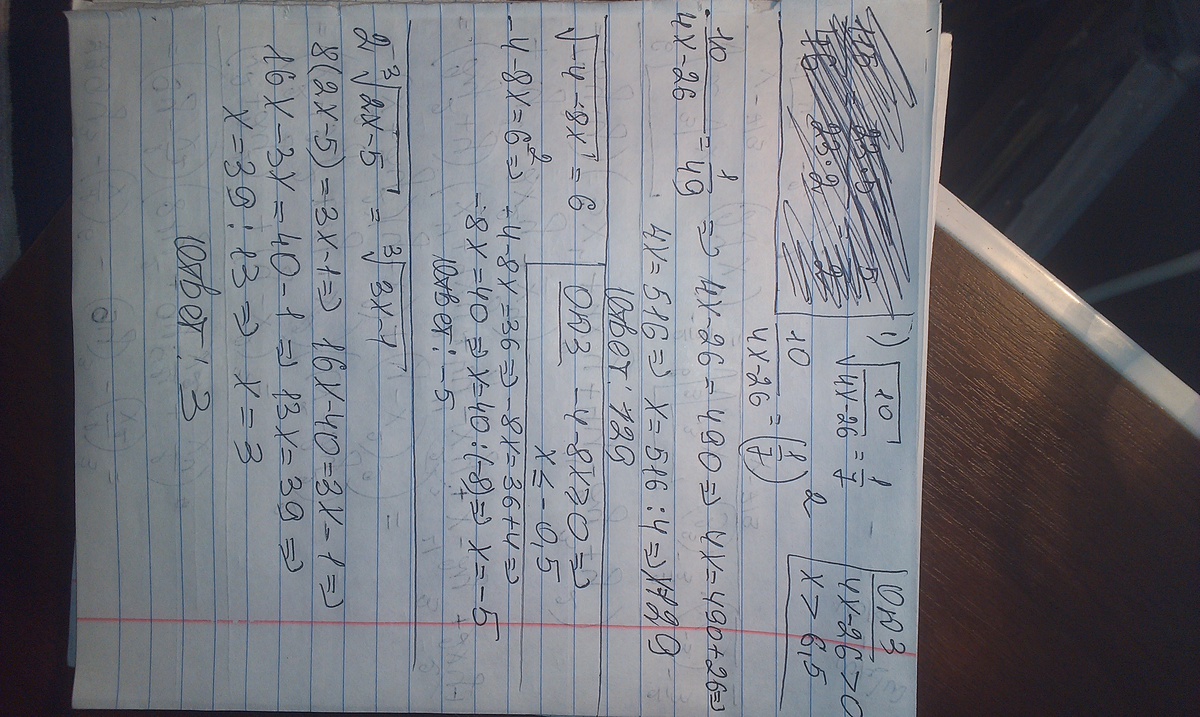 1) √(10/(4x-26)) = 1/7
ОДЗ
4x-26>0
x > 6,5
10/(4x-26) = (1/7)²
10/(4x-26) = 1/49 => 4x-26 = 490 => 4x = 490+26 =>
4x = 516 => x = 516 : 4 => x=129
Ответ: 129
√(-4-8x) = 6
ОДЗ -4-8x≥0 =>
x ≤ -0,5
-4-8x = 6² => -4-8x = 36 => -8x = 36+4 =>
-8x = 40 => x = 40 : (-8) => x = -5
Ответ: -5
2∛(2x-5) = ∛(3x-1)
8(2x-5) = 3x-1 => 16x-40 = 3x-1 =>
16x-3x = 40-1 => 13x = 39 =>
x = 39 : 13 => x = 3
Ответ: 3